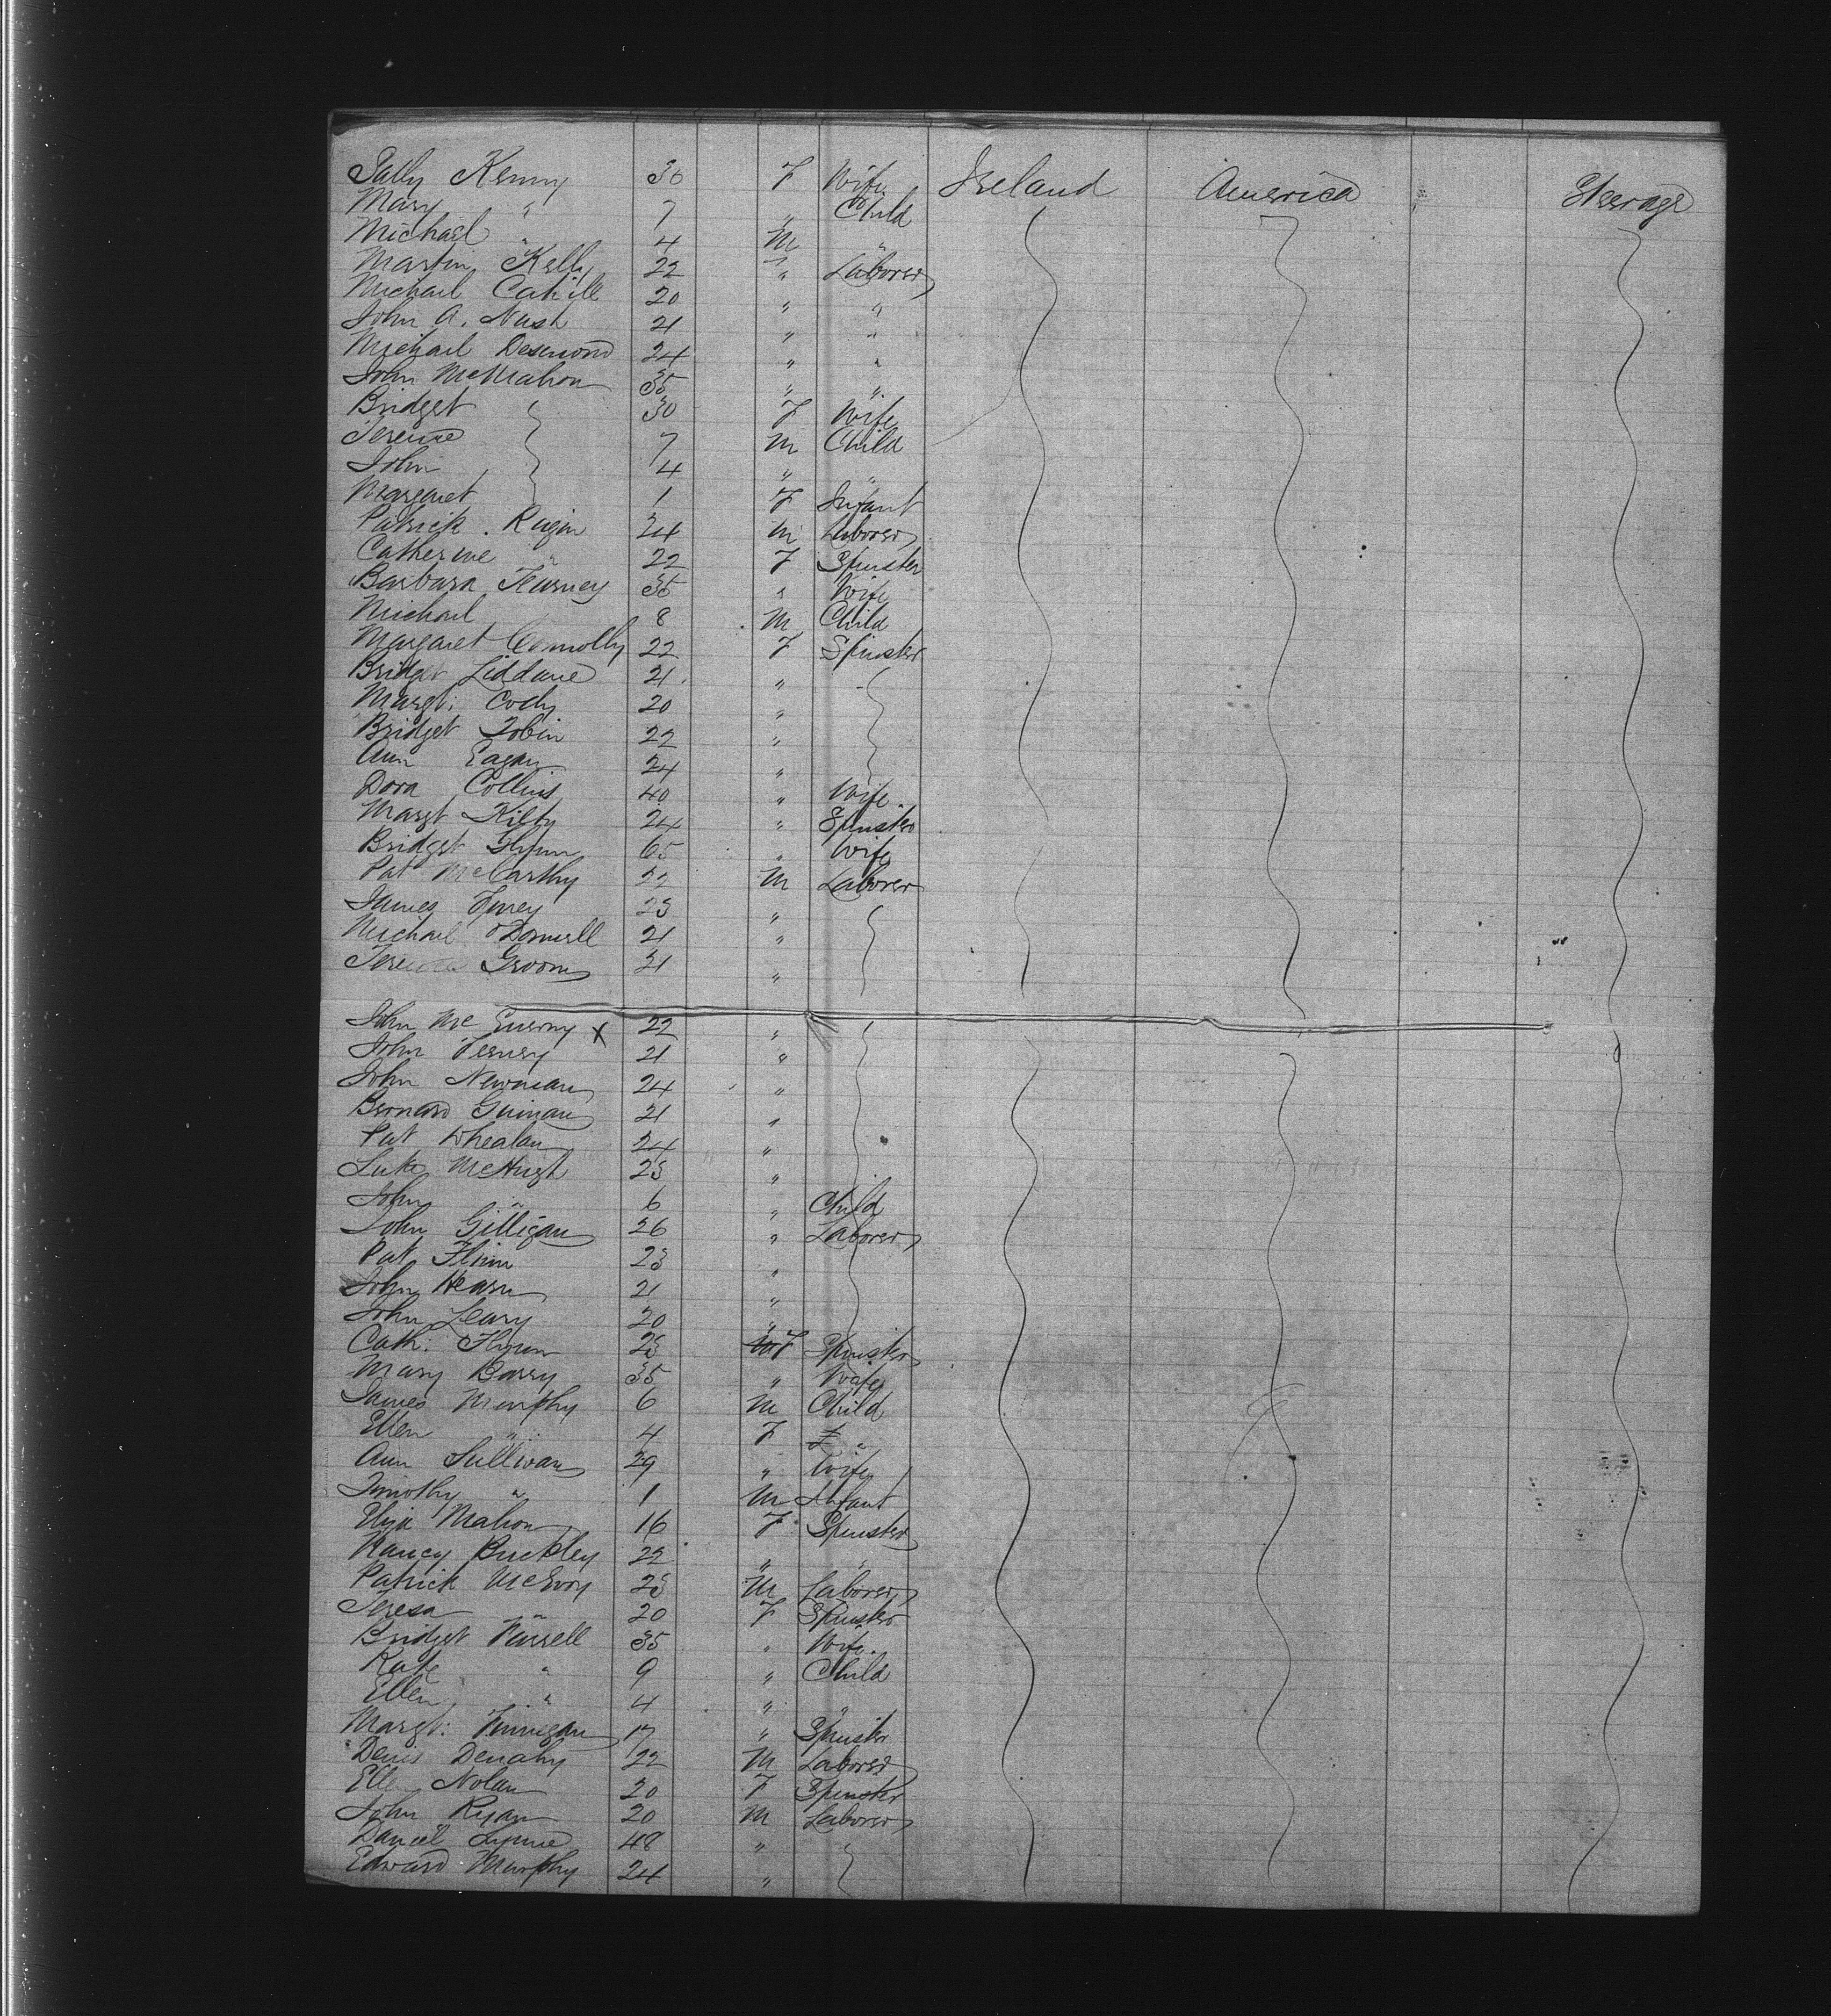 Sally Kenny 30 F Wife Ireland America Steerage
Mary " 7 " Child
Michael " 4 M "
Martin Kelly 22 " Laborer
Michael Cahill 20 " "
John A. Nash 21 " "
Michael Desmond 24 " "
John McMahon 35 " "
Bridget 30 F Wife
Terence 7 M Child
John 4 " "
Margaret 1 F Infant
Patrick 24 M Laborer
Catherine " 22 F Spinster
Barbara 35 " Wife
Michael 8 M Child
Margaret Connolly 22 F Spinster
Bridget Liddane 21 "
Margt: Cody 20 "
Bridget Tobin 22 "
Ann Eagan 24 "
Dora Collins 40 " Wife
Margt Kilty 24 " Spinster
Bridget Flynn 65 " Wife
Pat McCarthy 22 M Laborer
James 23 "
Michael O'Donnell 21 "
Terence Groom 21 "
John Mc X 22 "
John 21 "
John Newman 24 "
Bernard Guinan 21 "
Pat Whealan 24 "
Luke McHugh 23 "
John " 6 " Child
John Gilligan 26 " Laborer
Pat Flinn 23 "
John Hearn 21 "
John Leary 20 "
Cath: Flynn 23 F Spinster
Mary Barry 35 " Wife
James Murphy 6 M Child
Ellen " 4 F "
Ann Sullivan 29 " Wife
Timothy " 1 M Infant
Eliza Mahon 16 F Spinster
Nancy Buckley 22 " "
Patrick McEvoy 23 M Laborer
Teresa " 20 F Spinster
Bridget 35 " Wife
Kate " 9 " Child
Ellen " 4 " "
Margt: Finnegan 17 " Spinster
Denis Denahy 22 M Laborer
Ellen Nolan 20 F Spinster
John Ryan 20 M Laborer
Daniel 48 "
Edward Murphy 24 "